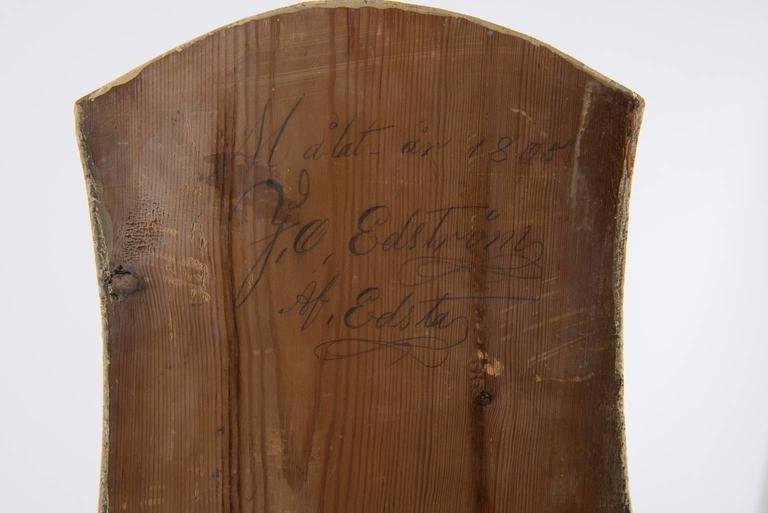 Målat år 1805
J, O, Edström
Af, Edsta